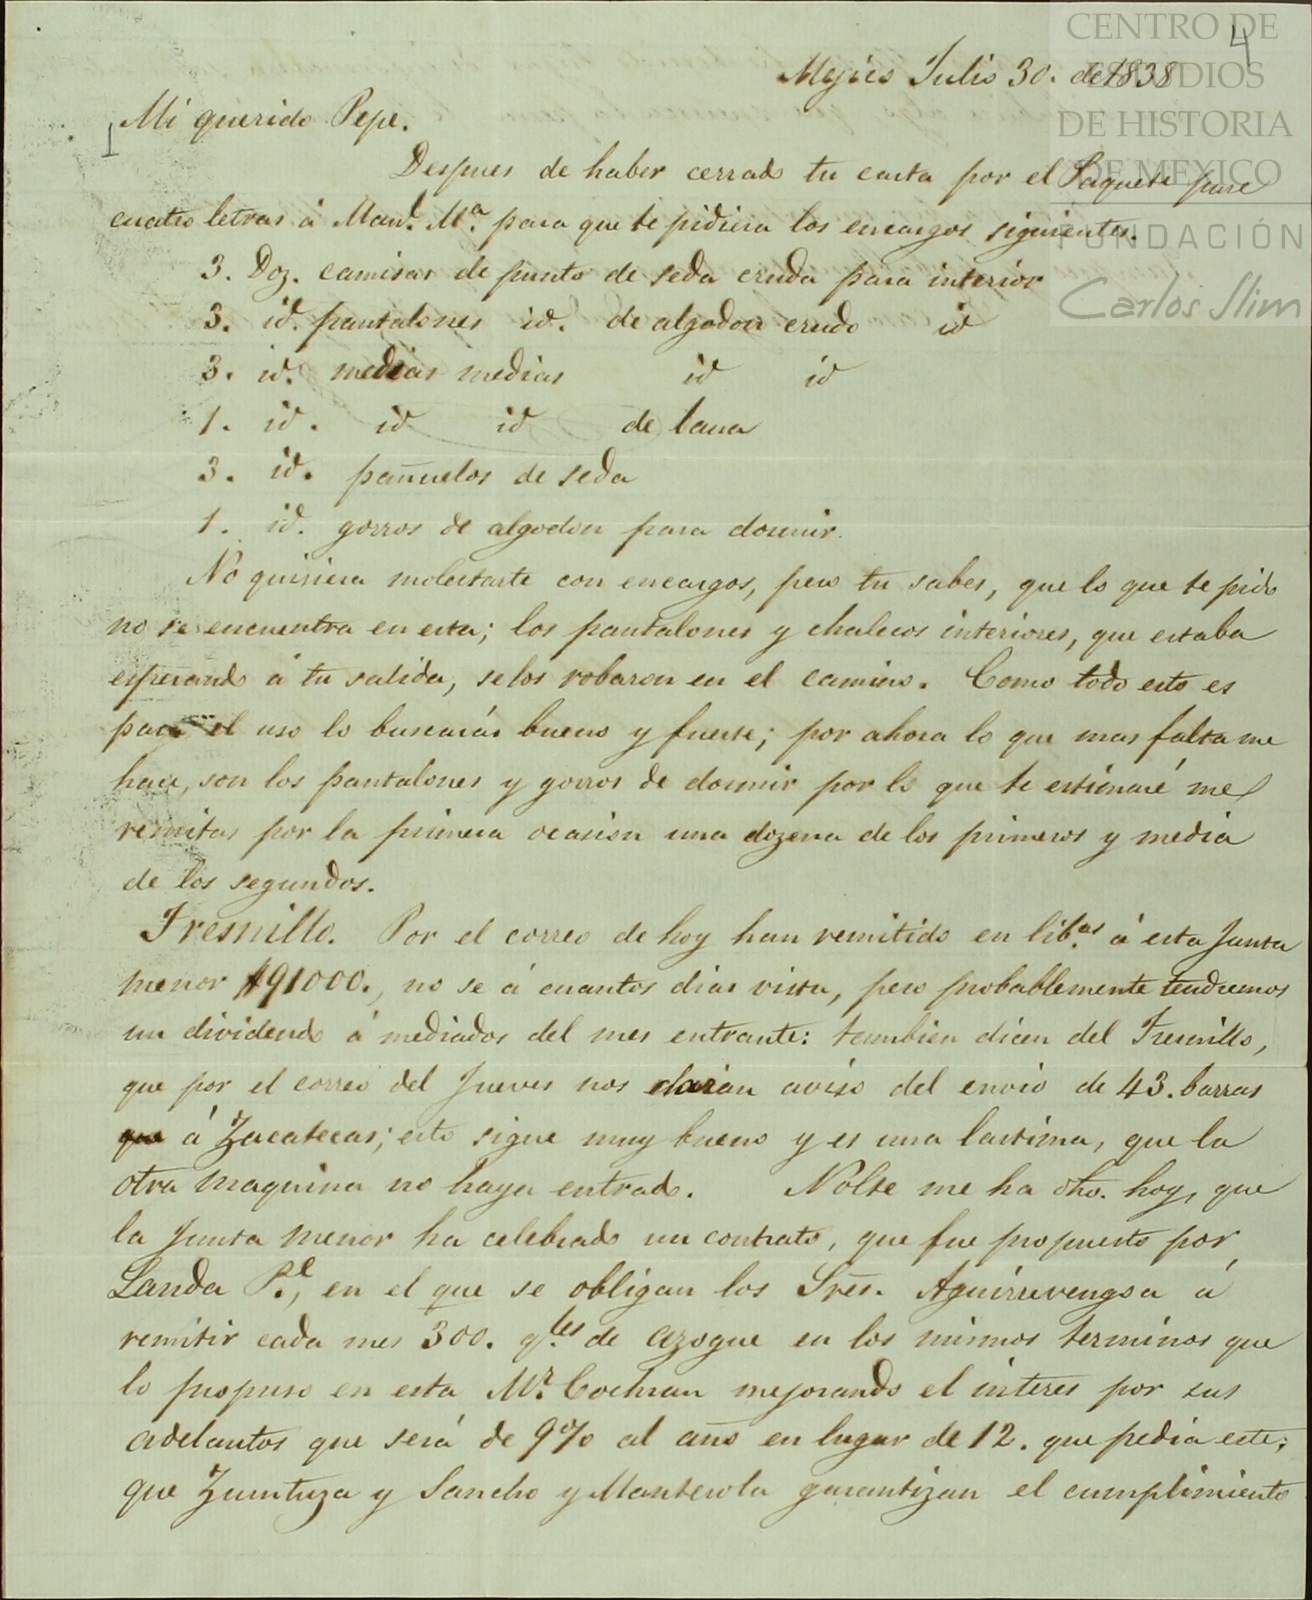 4
CENTRO DE
ESTUDIOS
DE HISTORIA
DE MEXICO
FUNDACIÓN
Carlos Slim
Mejico Julio 30. de 1838
Mi querido Pepe.
Despues de haber cerrado tu carta por el Paquete puse
cuatro letras á Manl. Ma. para que te pidiera los encargos siguientes.
3. Doz. camisas de punto de seda cruda para interior
3. id. pantalones id. de algodon crudo id
3. id. medias medias id id
1. id. id id de lana
3. id. pañuelos de seda
1. id. gorros de algodon para dormir.
No quisiera molestarte con encargos, pero tu sabes, que lo que te pido
no se encuentra en esta; los pantalones y chalecos interiores, que estaba
esperando á tu salida, se los robaron en el camino. Como todo esto es
para el uso lo buscarás bueno y fuerte; por ahora lo que mas falta me
hace, son los pantalones y gorros de dormir por lo que te estimaré me
remitas por la primera ocasion una dozena de los primeros y media
de los segundos.
Fresnillo. Por el correo de hoy han remitido en lib.as á esta Junta
menor $91000., no se á cuantos dias vista, pero probablemente tendremos
un dividendo á mediados del mes entrante: tambien dicen del Fresnillo,
que por el correo del Jueves nos darian aviso del envio de 43. barras
que á Zacatecas; esto sigue muy bueno y es una lastima, que la
otra maquina no haya entrado. Nolte me ha dho. hoy, que
la Junta menor ha celebrado un contrato, que fue propuesto por
Landa P.e, en el que se obligan los Sres. Aguirrevengoa á
remitir cada mes 300. q.les de azogue en los mismos terminos que
lo propuso en esta Mr. Cochran mejorando el interes por sus
adelantos que será de 9% al año en lugar de 12. que pedia este;
que Zumtuza y Sancho y Manterola garantizan el cumplimiento